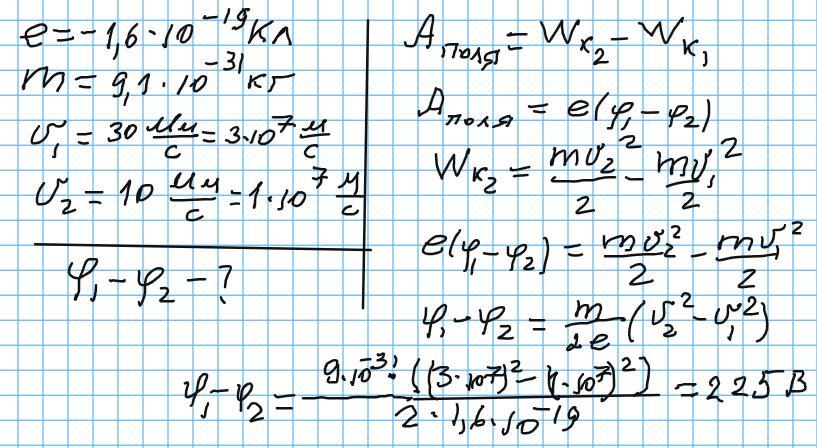 e = -1,6·10^-19 Кл
m = 9,1·10^-31 кг
υ₁ = 30 Мм/с = 3·10^7 м/с
υ₂ = 10 Мм/с = 1·10^7 м/с
φ₁ - φ₂ - ?
A поля = W к₂ - W к₁
A поля = e(φ₁ - φ₂)
W к₂ = mυ₂²/2 - mυ₁²/2
e(φ₁ - φ₂) = mυ₂²/2 - mυ₁²/2
φ₁ - φ₂ = m/2e (υ₂² - υ₁²)
φ₁ - φ₂ = 9·10^-31·((3·10^7)² - (1·10^7)²)/2·1,6·10^-19 = 225 В